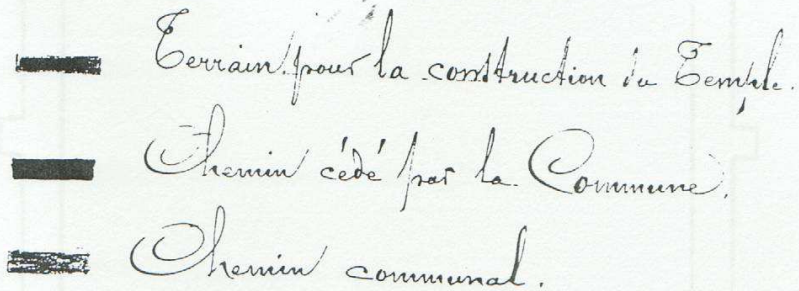 Terrain pour la construction du Temple.
Chemin cédé par la Commune.
Chemin communal.